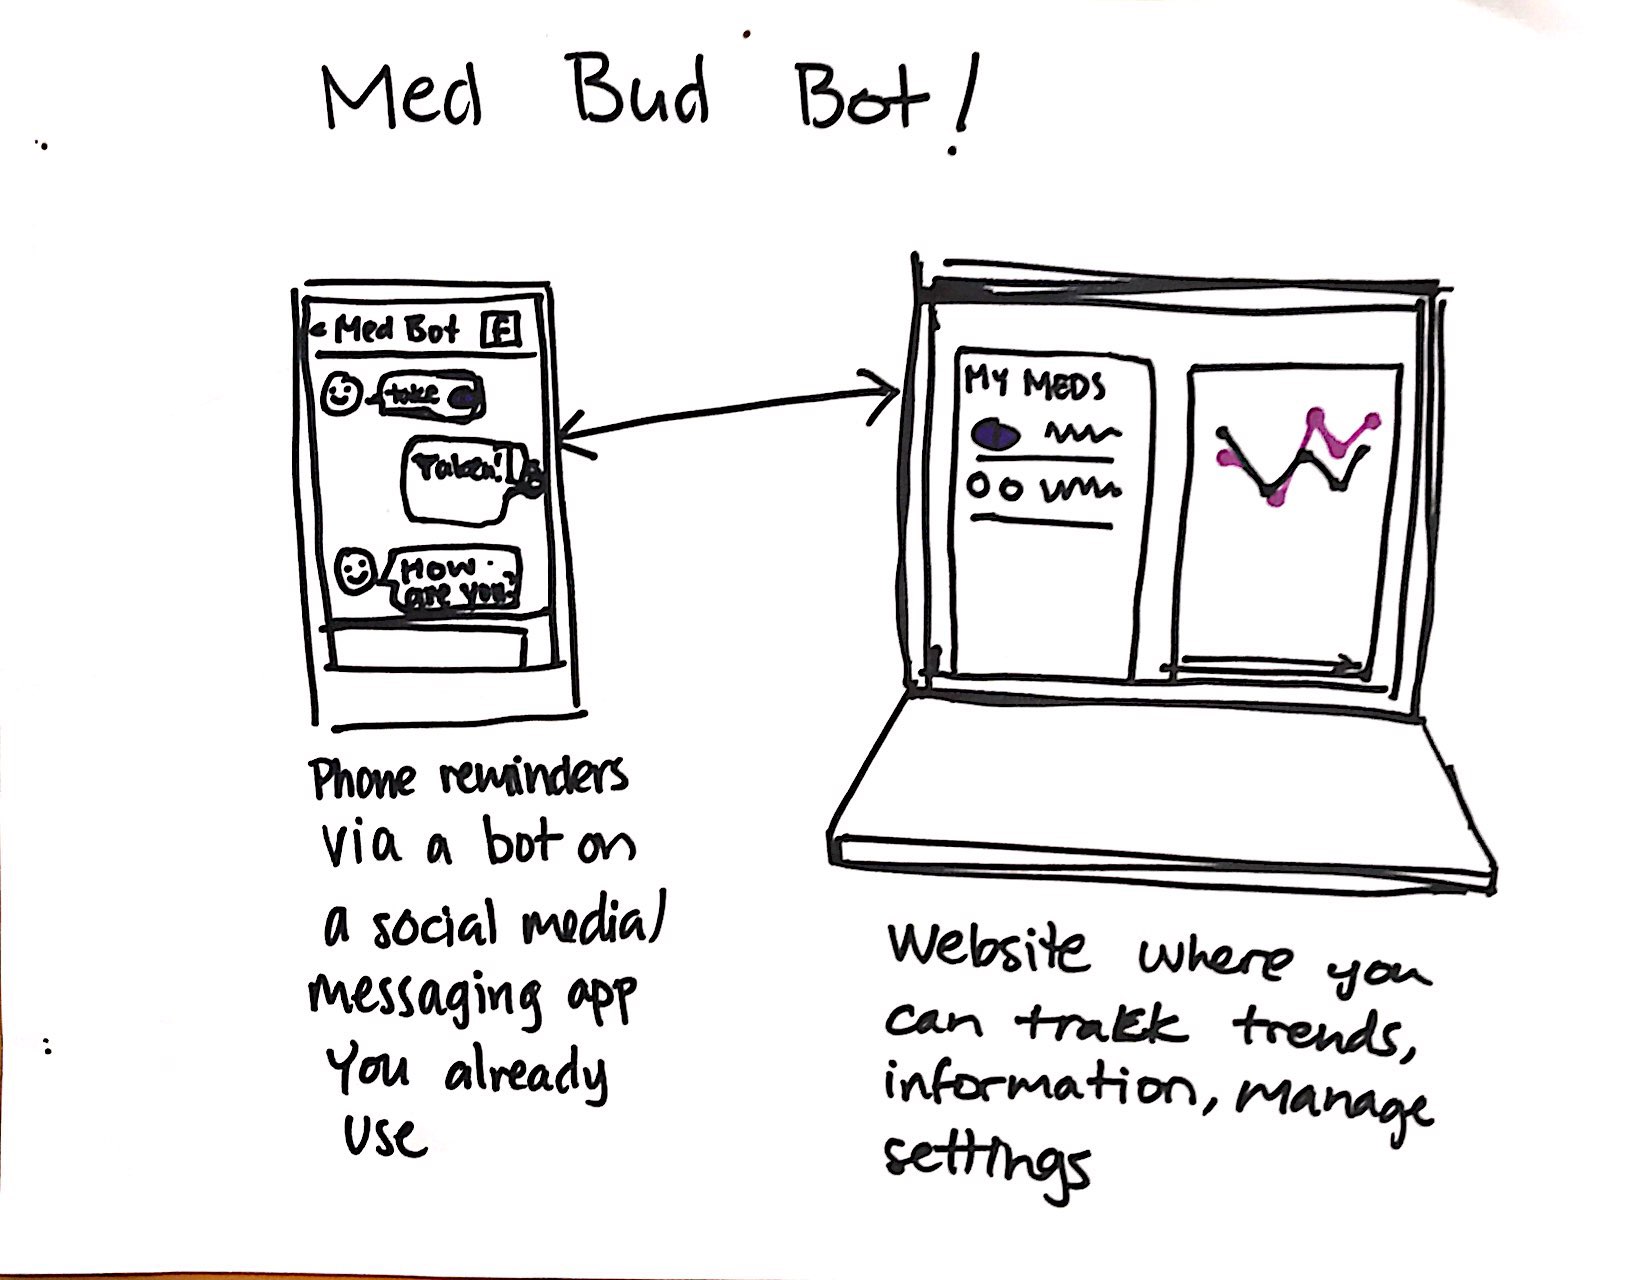 Med Bud Bot!
< Med Bot F
take
Taken!
How
are you?
MY MEDS
Phone reminders
via a bot on
a social media/
messaging app
You already
use
Website where you
can track trends,
information, manage
settings